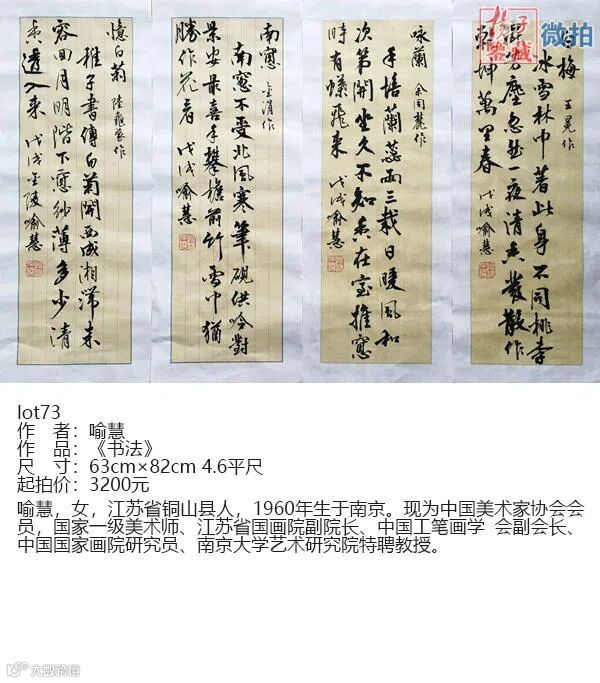 扬子
鉴藏
微拍
白梅 王冕作
冰雪林中著此身不同桃李
混芳塵忽然一夜清香發散作
乾坤萬里春 戊戌喻慧
咏蘭 余同麓作
手培蘭蕊兩三栽日暖風和
次第開坐久不知香在室推窓
時有蝶飛來 戊戌喻慧
南窓 金涓作
南窓不受北風寒筆硯供吟對
景安最喜手攀檐前竹雪中猶
勝作花看 戊戌喻慧
憶白菊 陸龜蒙作
稚子書傳白菊開西成相滯未
容回月明階下窓紗薄多少清
香透入來 戊戌金陵喻慧
lot73
作 者：喻慧
作 品：《书法》
尺 寸：63cm×82cm 4.6平尺
起拍价：3200元
喻慧，女，江苏省铜山县人，1960年生于南京。现为中国美术家协会会
员，国家一级美术师、江苏省国画院副院长、中国工笔画学 会副会长、
中国国家画院研究员、南京大学艺术研究院特聘教授。
大数跨境